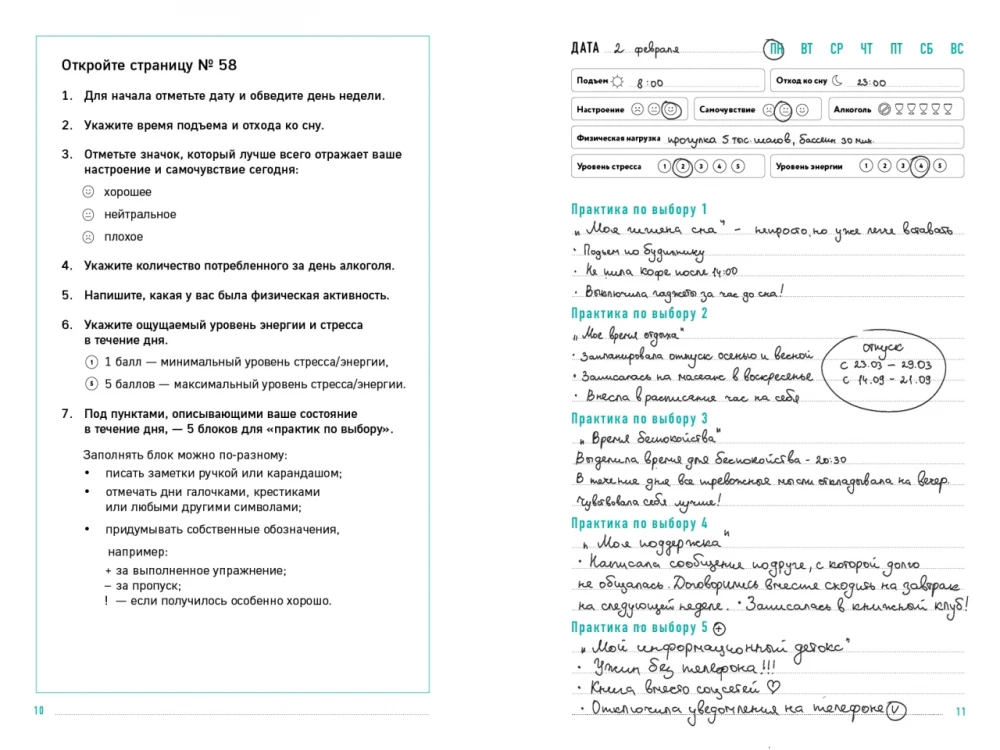 Откройте страницу № 58
1. Для начала отметьте дату и обведите день недели.
2. Укажите время подъема и отхода ко сну.
3. Отметьте значок, который лучше всего отражает ваше
настроение и самочувствие сегодня:
хорошее
нейтральное
плохое
4. Укажите количество потребленного за день алкоголя.
5. Напишите, какая у вас была физическая активность.
6. Укажите ощущаемый уровень энергии и стресса
в течение дня.
1 1 балл — минимальный уровень стресса/энергии,
5 5 баллов — максимальный уровень стресса/энергии.
7. Под пунктами, описывающими ваше состояние
в течение дня, — 5 блоков для «практик по выбору».
Заполнять блок можно по-разному:
• писать заметки ручкой или карандашом;
• отмечать дни галочками, крестиками
или любыми другими символами;
• придумывать собственные обозначения,
например:
+ за выполненное упражнение;
– за пропуск;
! — если получилось особенно хорошо.
10
ДАТА 2 февраля ПН ВТ СР ЧТ ПТ СБ ВС
Подъем 8:00 Отход ко сну 23:00
Настроение Самочувствие Алкоголь
Физическая нагрузка прогулка 5 тыс. шагов, бассейн 30 мин.
Уровень стресса 1 2 3 4 5 Уровень энергии 1 2 3 4 5
Практика по выбору 1
„Моя гигиена сна" – непросто, но уже легче вставать
· Подъем по будильнику
· Не пила кофе после 14:00
· Выключила гаджеты за час до сна!
Практика по выбору 2
„Мое время отдыха"
· Запланировала отпуск осенью и весной
· Записалась на массаж в воскресенье
· Внесла в расписание час на себя
отпуск
с 23.03 – 29.03
с 14.09 - 21.09
Практика по выбору 3
„Время беспокойства"
Выделила время для беспокойства - 20:30
В течение дня все тревожные мысли откладывала на вечер.
Чувствовала себя лучше!
Практика по выбору 4
„Моя поддержка"
· Написала сообщение подруге, с которой долго
не общалась. Договорились вместе сходить на завтрак
на следующей неделе. · Записалась в книжный клуб!
Практика по выбору 5 +
„Мой информационный детокс"
· Ужин без телефона!!!
· Книга вместо соцсетей ♡
· Отключила уведомления на телефоне V
11